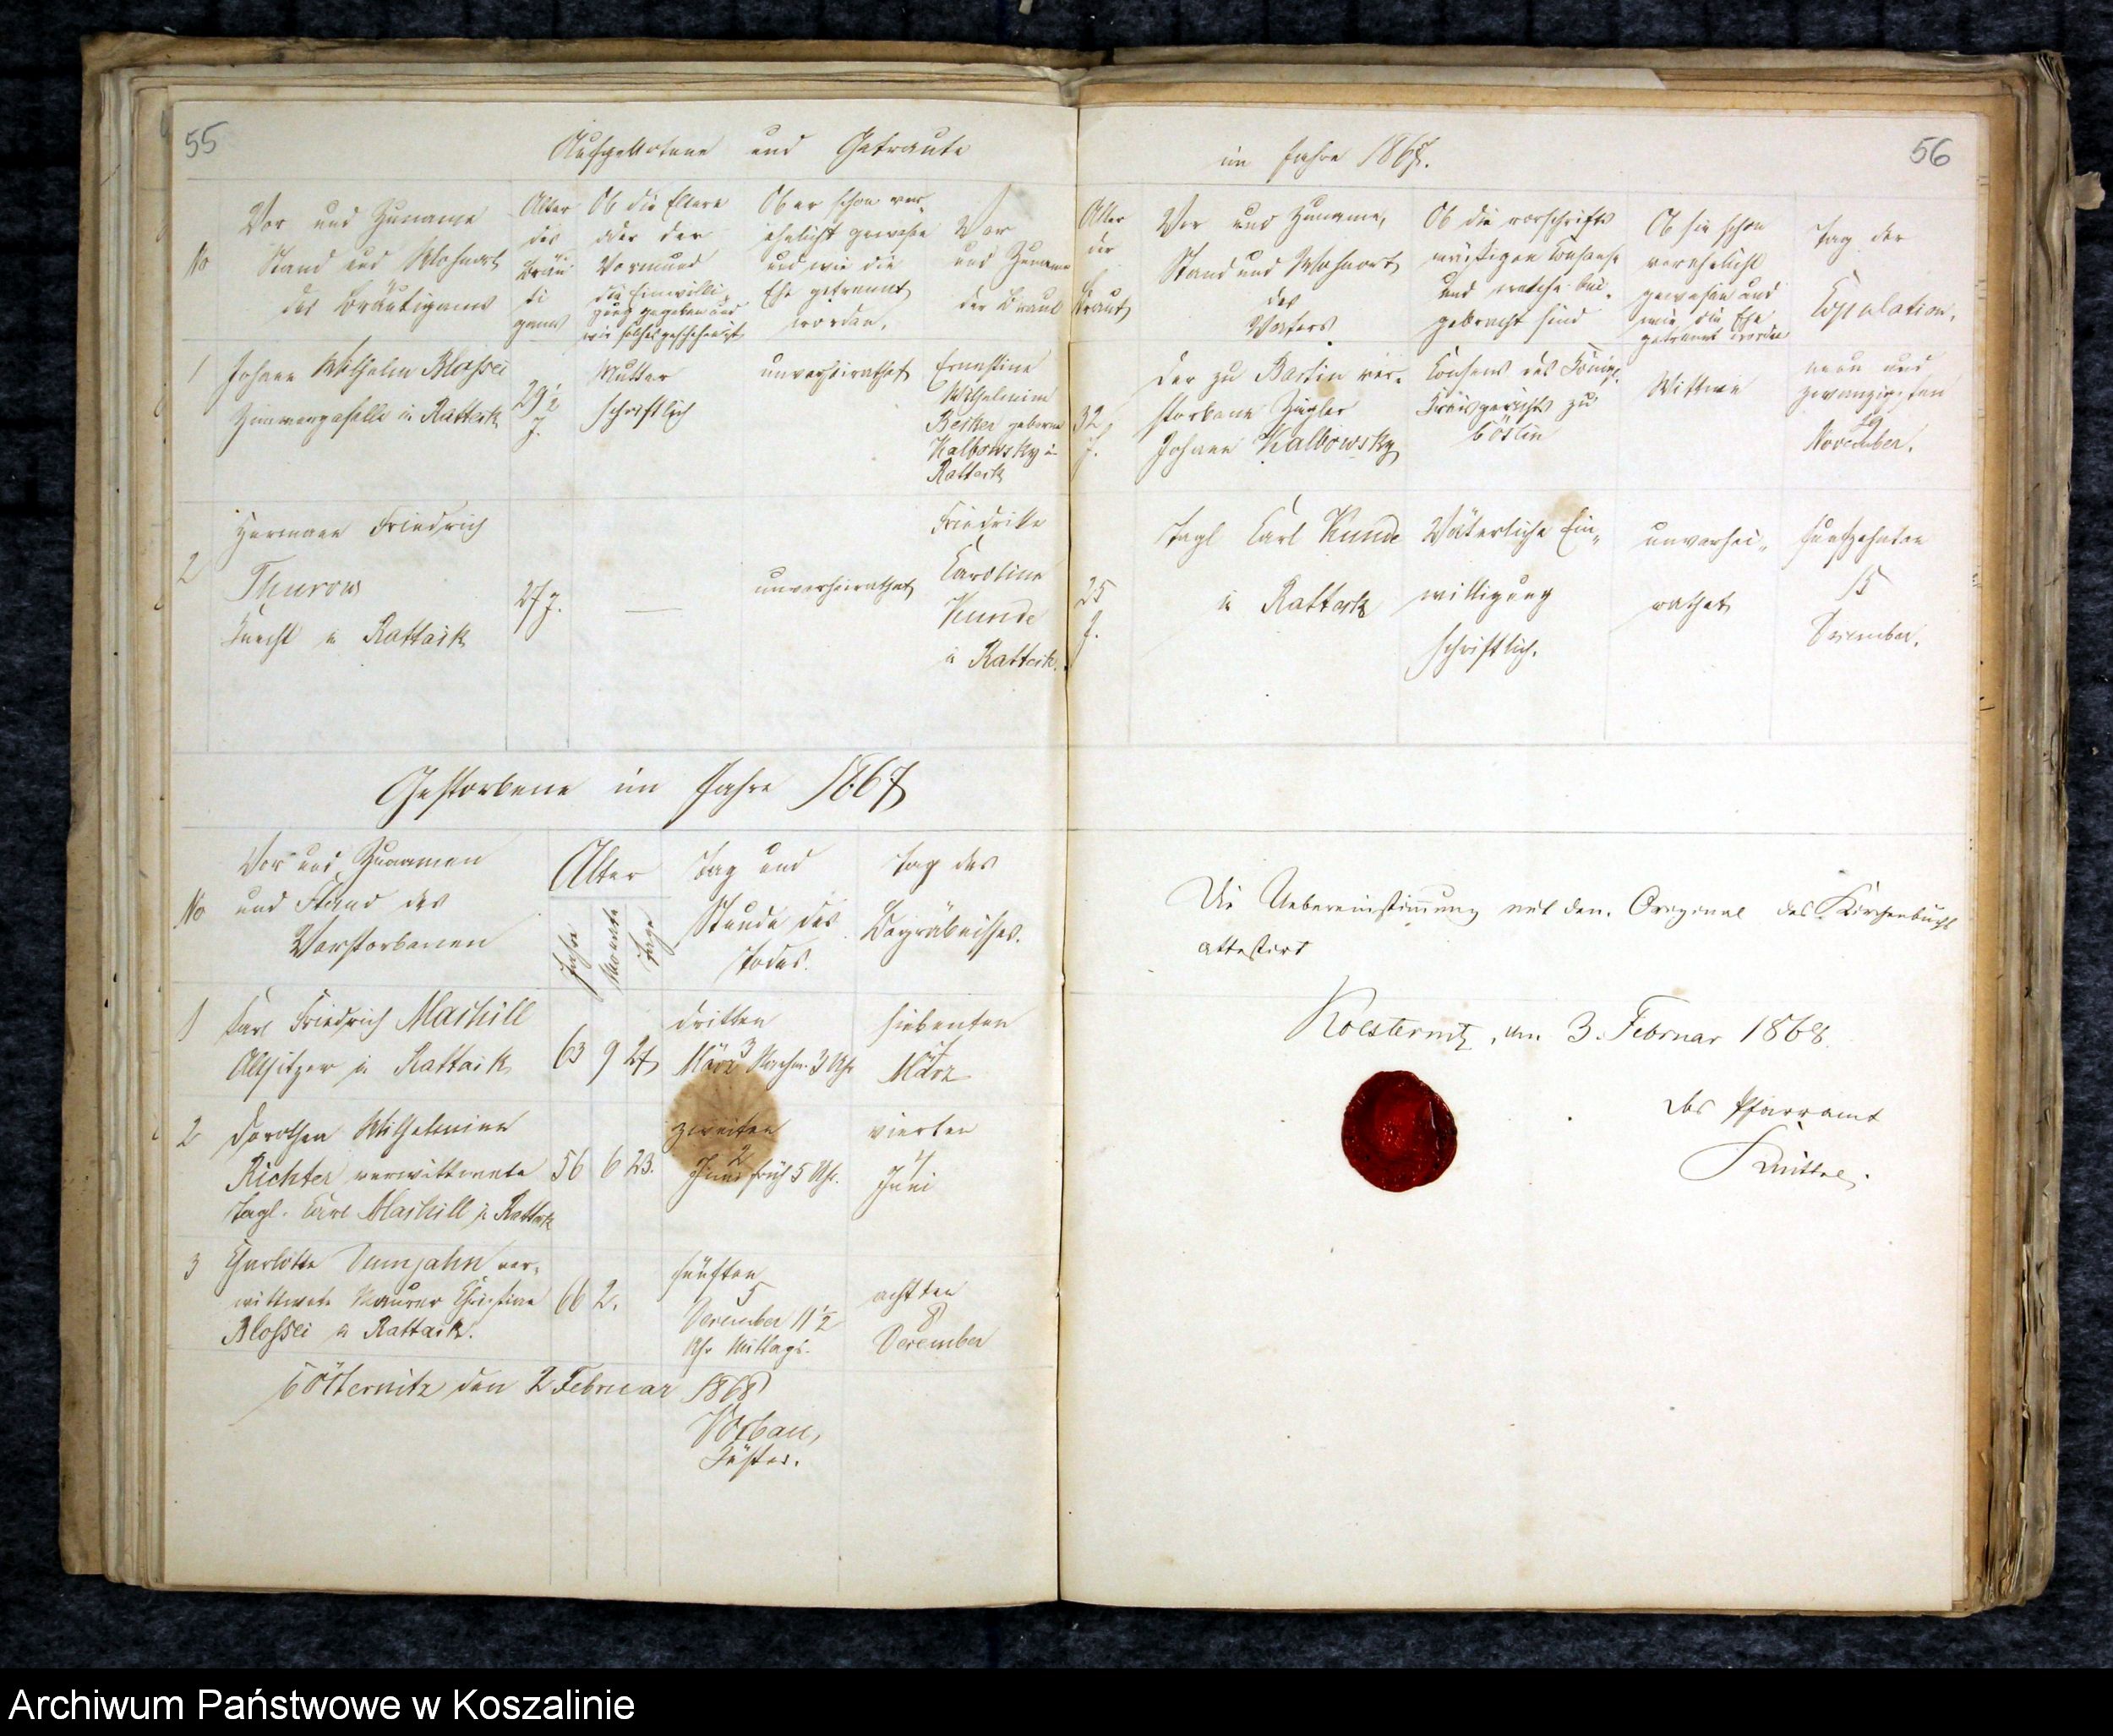 55
Aufgebotene und Getraute
No
Vor und Zuname
Stand und Wohnort
des Bräutigams
Alter
des
Bräu
ti
gams
Ob die Eltern
oder der
Vormund
die Einwilli-
gung gegeben und
wie solches geschehen ist
Ob er schon ver-
ehelicht gewesen
und wie die
Ehe getrennt
worden.
Vor
und Zuname
der Braut
1
Johann Wilhelm Blossei
Zimmergeselle in Rattaik
29½
J.
Mutter
schriftlich
unverheirathet
Ernestine
Wilhelmine
Becker geborne
Kalbowsky in
Rattaik
2
Hermann Friedrich
Thurow
Knecht in Rattaik
27 J.
—
unverheirathet
Friedrike
Caroline
Kunde
in Rattaik.
Gestorbene im Jahre 1867
No
Vor und Zunamen
und Stand des
Verstorbenen
Alter
Jahre
Monate
Tage
Tag und
Stunde des
Todes.
Tag des
Begräbnisses.
1
Carl Friedrich Maskill
Altsitzer in Rattaik
63 9 27
dritten
3
März Nachm. 3 Uhr
siebenten
7
März
2
Dorothea Wilhelmine
Richter verwittwete
Tagl. Carl Maskill in Rattaik
56 6 23.
zweiten
2
Juni früh 5 Uhr.
vierten
4
Juni
3
Charlotte Damjahn ver-
wittwete Maurer Christian
Blossei in Rattaik.
66 2.
fünften
5
December 11½
Uhr Mittags.
achten
8
December
Cösternitz den 2 Februar 1868
Küster.
56
im Jahre 1867.
Alter
der
Braut
Vor und Zuname,
Stand und Wohnort
des
Vaters
Ob die vorschrifts
mäßigen Consense
und welche bei-
gebracht sind
Ob sie schon
verehelicht
gewesen und
wie die Ehe
getrennt worden
Tag der
Copulation.
32
J.
Der zu Bartin ver-
storbene Ziegler
Johann Kalbowsky
Consens des Königl.
Kreisgerichts zu
Cöslin
Wittwe
neun und
zwanzigsten
29
November.
25
J.
Tagl Carl Kunde
in Rattaik
Väterliche Ein-
willigung
schriftlich.
unverhei-
rathet
fünfzehnten
15
December.
Die Uebereinstimmung mit dem Original des Kirchenbuchs
attestirt
Koesternitz, den 3. Februar 1868.
Das Pfarramt
Archiwum Państwowe w Koszalinie